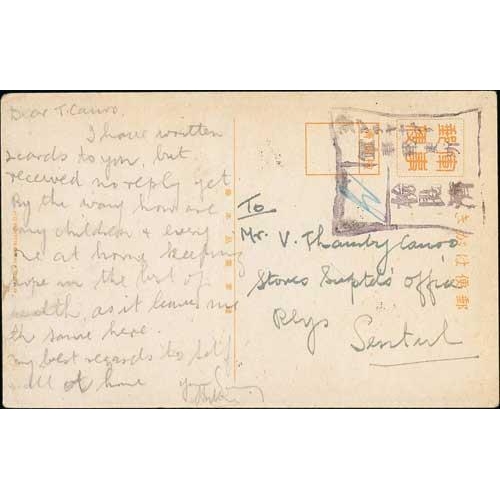 Dear T. Cauro.
I have written
2 cards to you, but
received no reply yet
By the way how are
my children & every
one at home keeping
hope in the best of
health as it leaves me
the same here.
My best regards to self
& all at home
To
Mr. V. Thamby Cauro
Stores Suptds Office
Rlys
Sentul
軍事
郵便
検閲済
郵便はがき